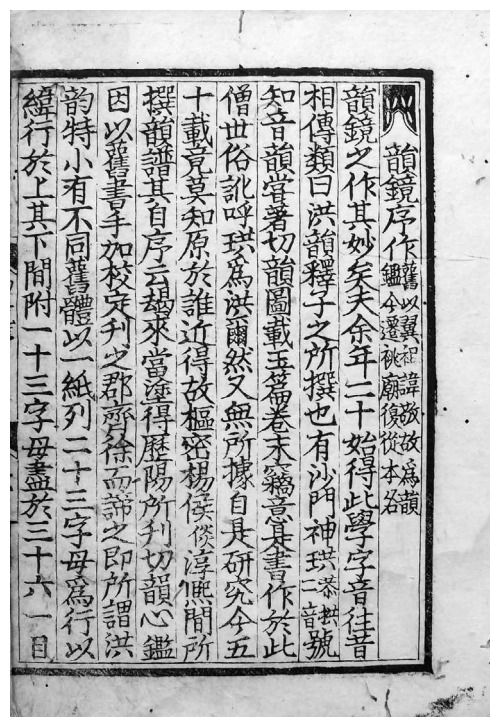 韻鏡序作舊以翼祖諱敬故爲韻鑑今遷祧廟復從本名
韻鏡之作其妙矣夫余年二十始得此學字音往昔
相傳類曰洪韻釋子之所撰也有沙門神珙恭拱二音號
知音韻嘗著切韻圖載玉篇卷末竊意是書作於此
僧世俗訛呼珙爲洪爾然又無所據自是研究今五
十載竟莫知原於誰近得故樞密楊侯倓淳熈間所
撰韻譜其自序云朅來當塗得歷陽所刋切韻心鑑
因以舊書手加校定刋之郡齋徐而諦之即所謂洪
韵特小有不同舊體以一紙列二十三字母爲行以
緯行於上其下間附一十三字母盡於三十六一目